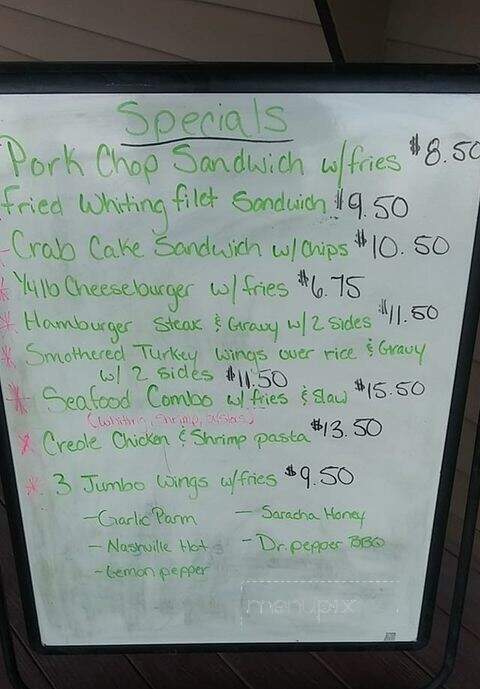 Specials
Pork Chop Sandwich w/fries $8.50
Fried Whiting filet Sandwich $9.50
* Crab Cake Sandwich w/Chips $10.50
* 1/4lb Cheeseburger w/ fries $6.75
* Hamburger Steak & Gravy w/ 2 sides $11.50
* Smothered Turkey Wings over rice & Gravy
w/ 2 sides $11.50
* Seafood Combo w/ fries & slaw $15.50
(Whiting, shrimp,
* Creole Chicken & Shrimp pasta $13.50
* 3 Jumbo Wings w/fries $9.50
- Garlic Parm
- Saracha Honey
- Nashville Hot
- Dr. pepper BBQ
- Lemon pepper
menupix